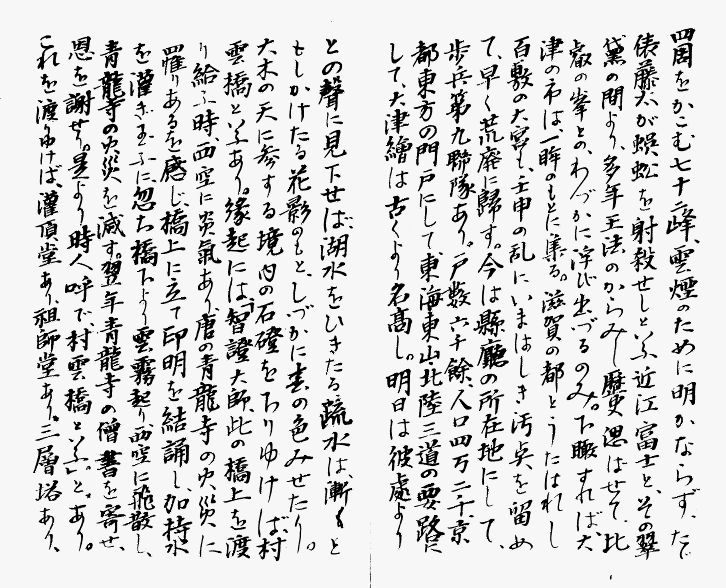 四周をかこむ七十二峰、雲煙のために明かならず、たゞ
俵藤太が蜈蚣を射殺せしといふ近江富士と、その翠
黛の間より、多年王法のからみし歴史思はせて、比
叡の峯との、わづかに浮び出づるのみ。下瞰すれば、大
津の市は、一眸のもとに集る。滋賀の都とうたはれし
百敷の大宮も、壬申の乱にいまはしき汚点を留め
て、早く荒廃に歸す。今は縣廳の所在地にして、
歩兵第九聯隊あり。戸数六千餘、人口四万二千、京
都東方の門戸にして東海東山北陸三道の要路に
して、大津繪は古くより名高し。明日は彼處より
との聲に見下せば、湖水をひきたる疏水は、漸く
もしかけたる花影のもと、しづかに春の色みせたり。
大木の天に参する境内の石磴を下りゆけば、村
雲橋といふあり。縁起には、智證大師、此の橋上を渡
り給ふ時、西空に炎氣あり、唐の青龍寺の火災に
罹りあるを感じ、橋上に立て印明を結誦し、加持水
を灌ぎ玉ふに、忽ち橋下より雲霧起り、西空に飛散し、
青龍寺の火災を滅す。翌年青龍寺の僧書を寄せ、
恩を謝せり。是より時人呼で、村雲橋といふ」と。あり。
これを渡りゆけば、灌頂堂あり、祖師堂あり。三層塔あり、